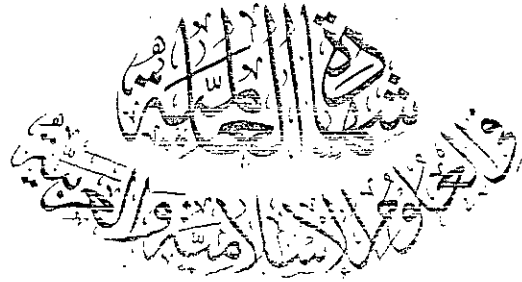 شهادة العالمية
في العلوم الإسلامية والعربية